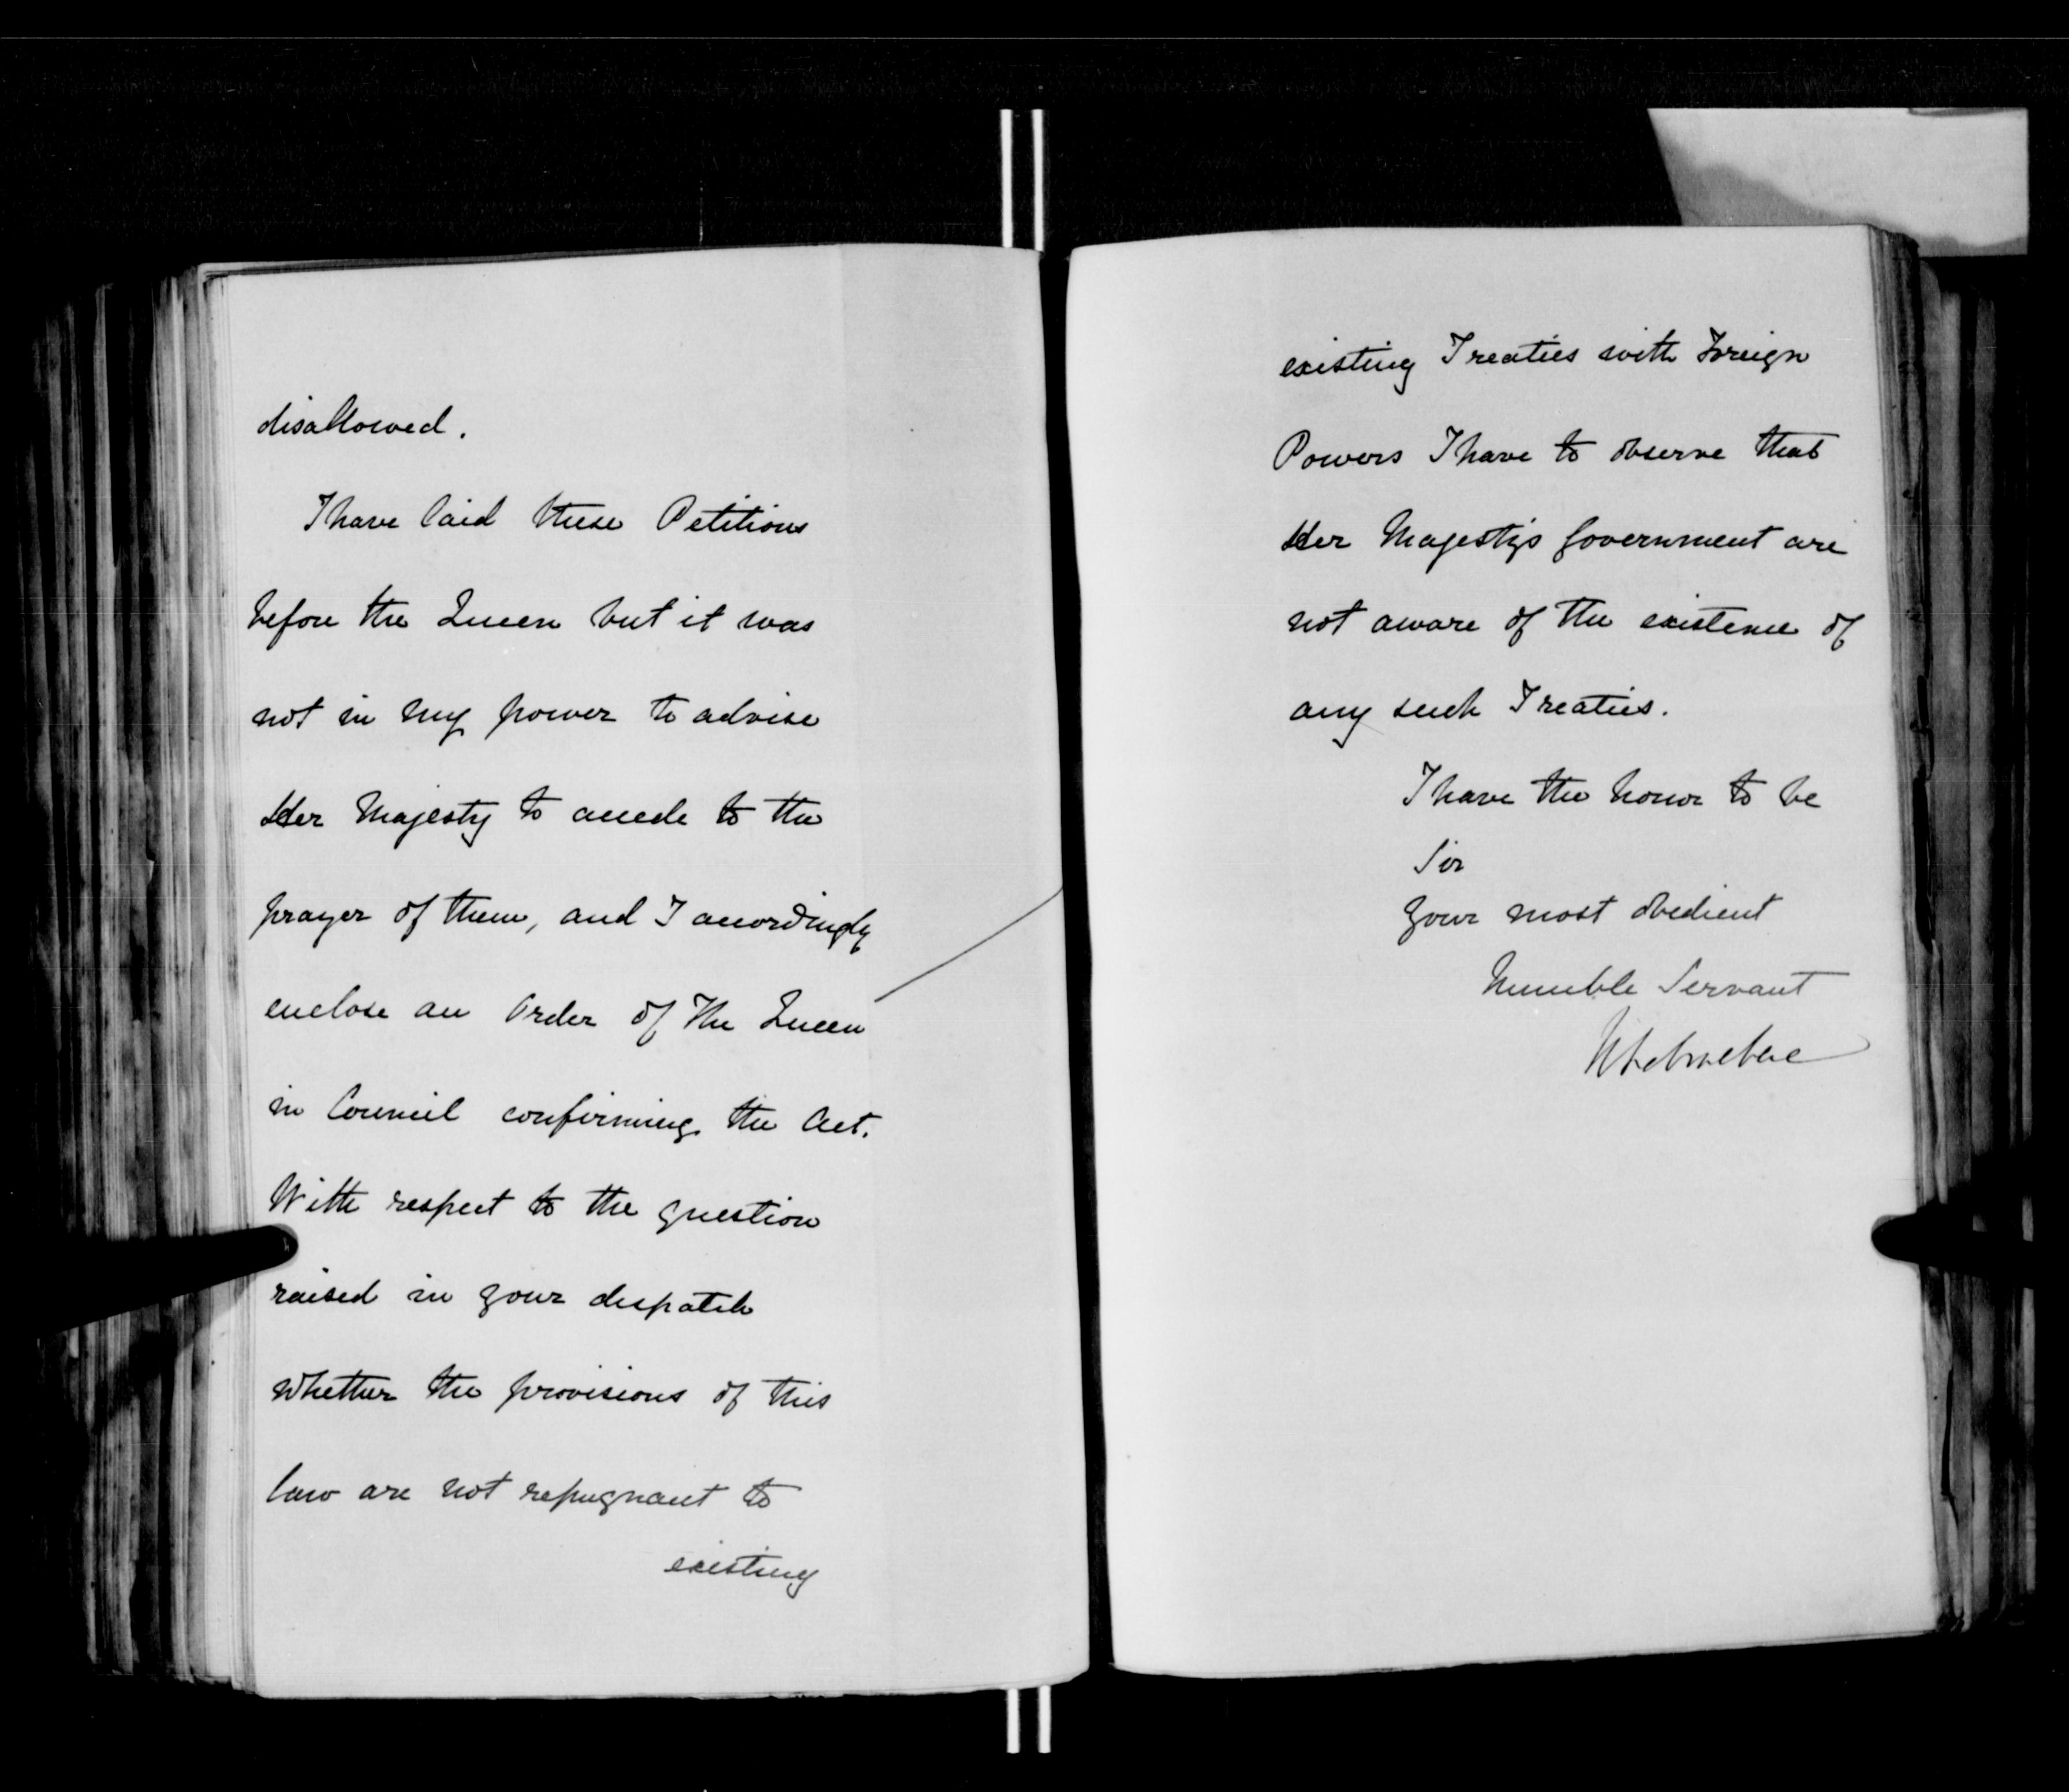 disallowed.
I have laid these Petitions
before the Queen but it was
not in my power to advise
Her Majesty to accede to the
prayer of them, and I accordingly
enclose an Order of the Queen
in Council confirming the Act.
With respect to the question
raised in your despatch
whether the provisions of this
law are not repugnant to
existing
existing Treaties with Foreign
Powers I have to observe that
Her Majesty's Government are
not aware of the existence of
any such Treaties.
I have the honor to be
Sir
Your most obedient
humble Servant